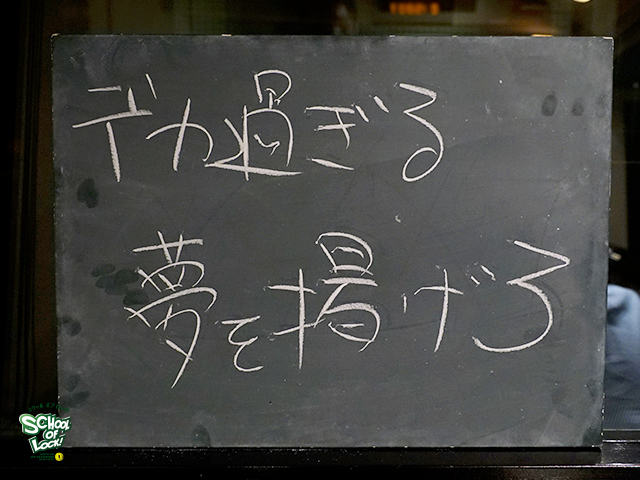 デカ過ぎる
夢を掲げろ
SCHOOL
OF
LOCK!